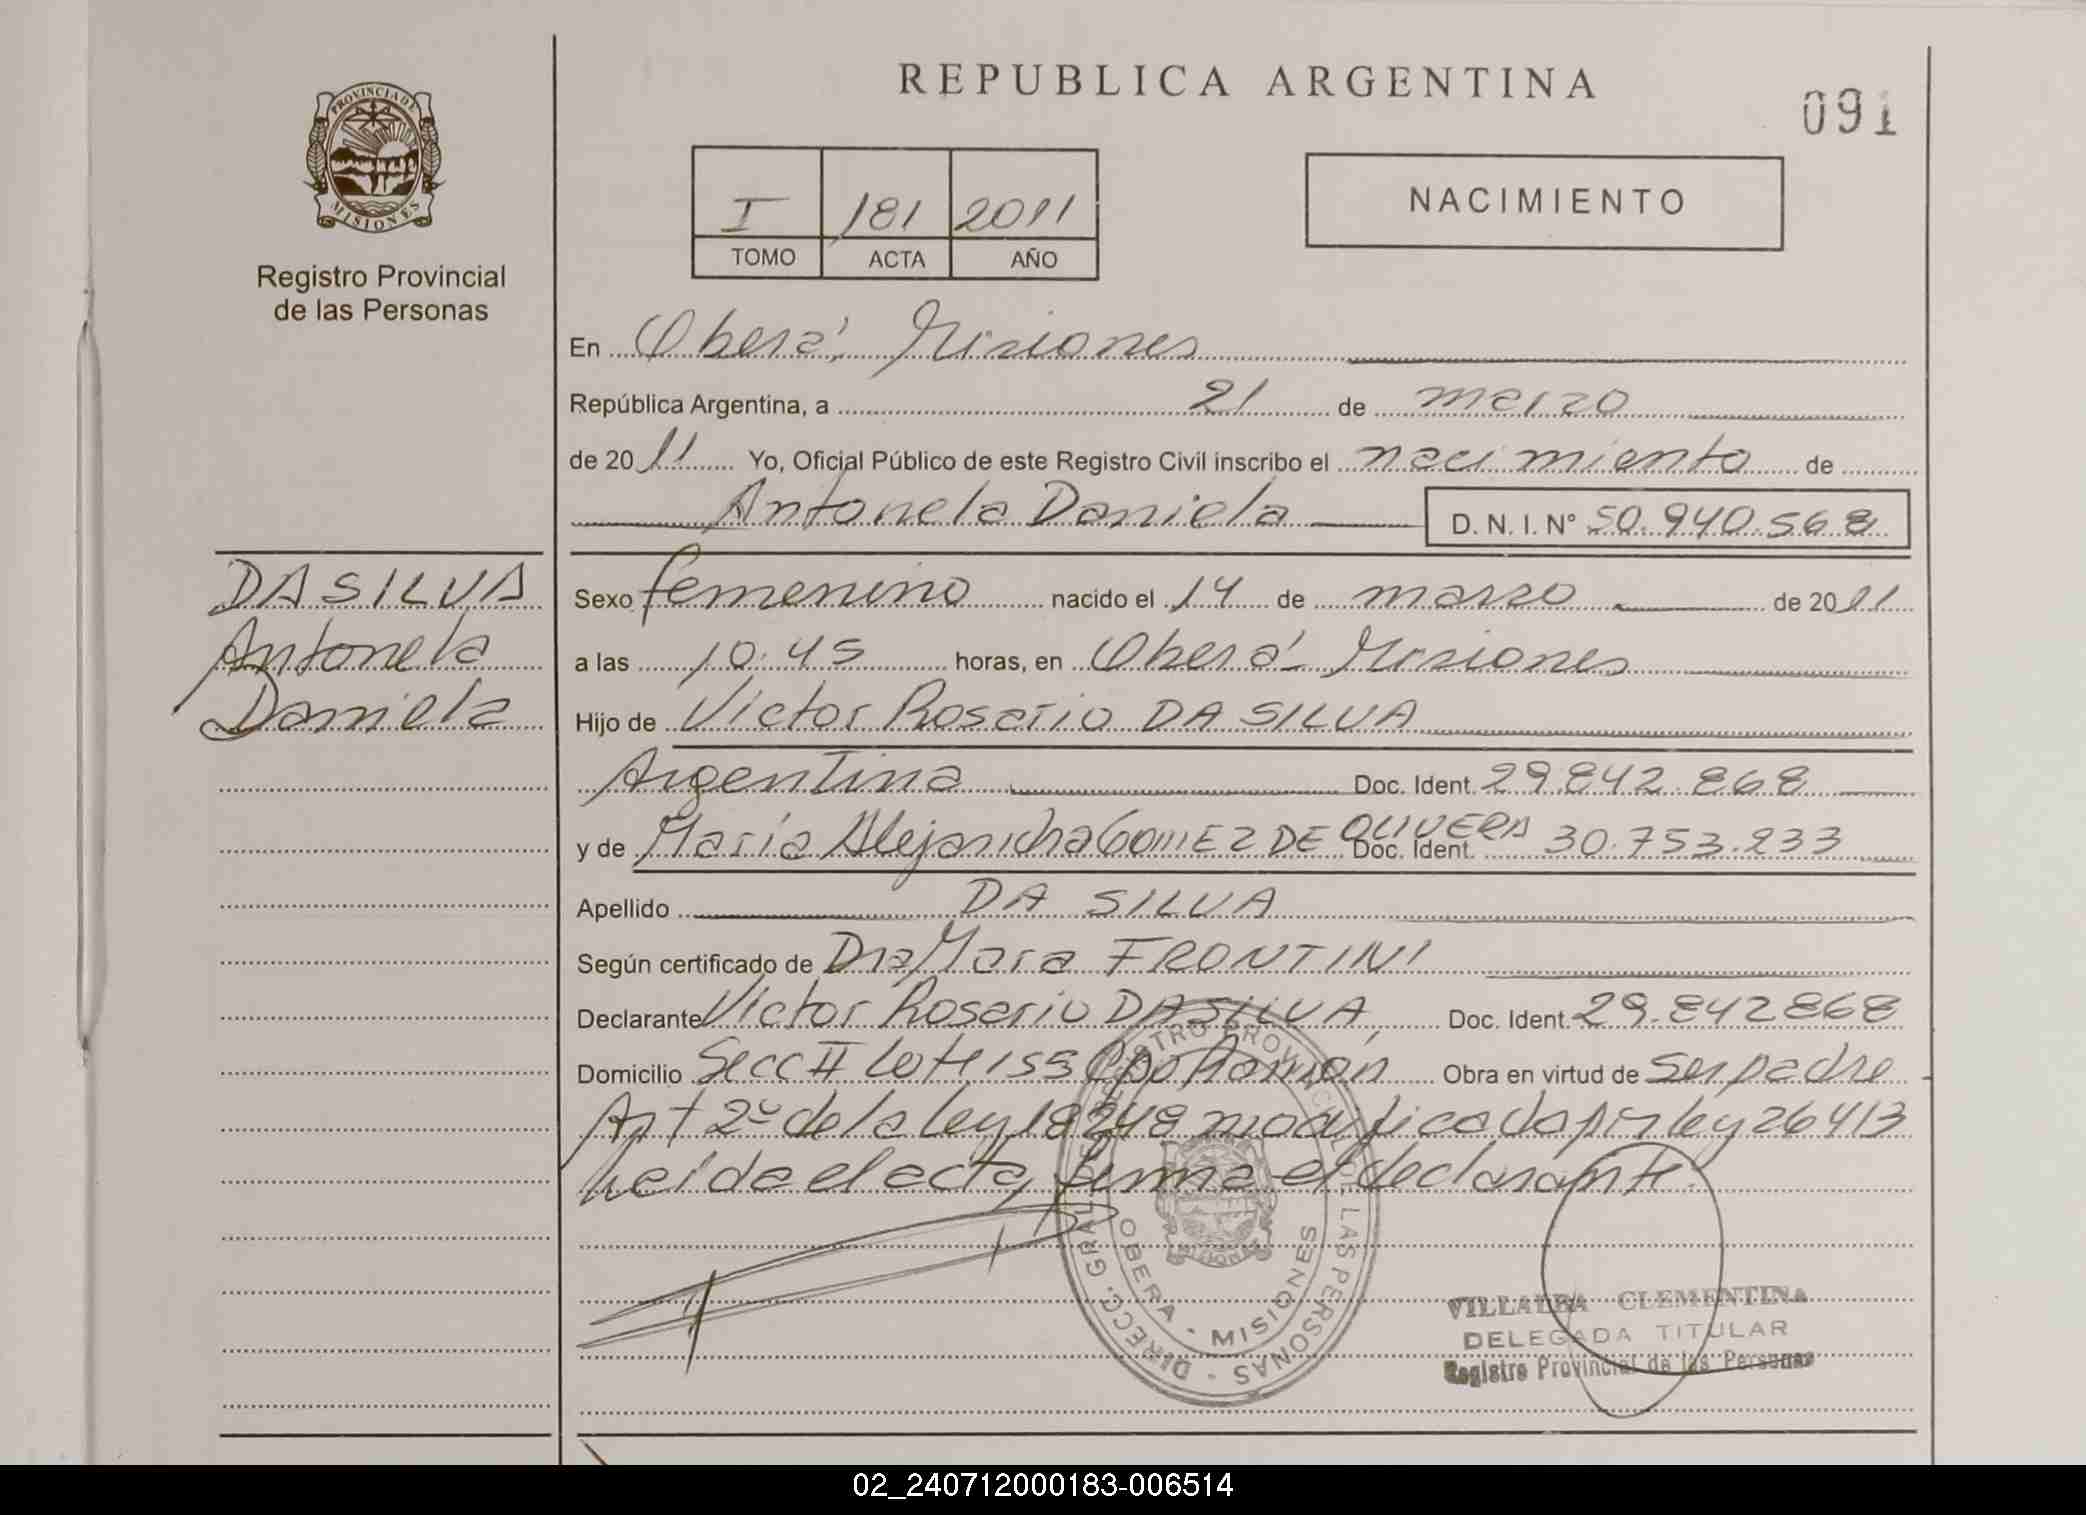 REPUBLICA ARGENTINA
091
PROVINCIA DE
MISIONES
Registro Provincial
de las Personas
I 181 2011
TOMO ACTA AÑO
NACIMIENTO
En Oberá, Misiones
República Argentina, a 21 de marzo
de 2011 Yo, Oficial Público de este Registro Civil inscribo el nacimiento de
Antonela Daniela D. N. I. N° 50.940.568
DA SILVA
Antonela
Daniela
Sexo femenino nacido el 14 de marzo de 2011
a las 10.45 horas, en Oberá Misiones
Hijo de Victor Rosario DA SILVA
Argentina Doc. Ident. 29.842.868
y de María Alejandra GOMEZ DE OLIVERA Doc. Ident. 30.753.233
Apellido DA SILVA
Según certificado de Dra Mara FRONTINI
Declarante Victor Rosario DA SILVA, Doc. Ident. 29.842868
Domicilio Secc II Lote 155 Cpo Ramón Obra en virtud de ser padre
Art 2º de la Ley 18248 modificada por ley 26413
Leida el acta, firma el declarante.
DIRECC. GRAL. DEL REGISTRO PROVINCIAL DE LAS PERSONAS
OBERA - MISIONES
VILLALBA CLEMENTINA
DELEGADA TITULAR
Registro Provincial de las Personas
02_240712000183-006514